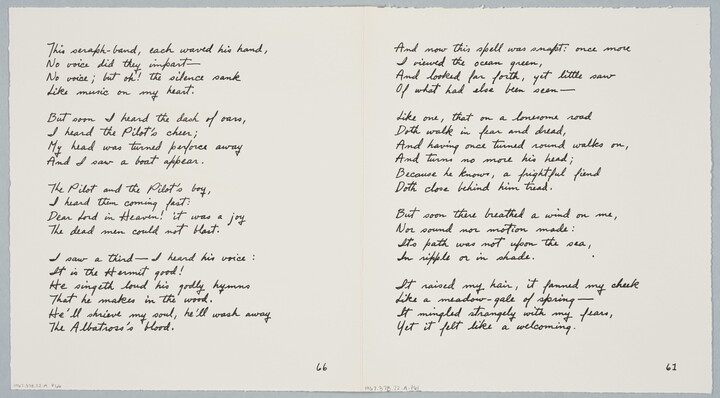 This seraph-band, each waved his hand,
No voice did they impart—
No voice; but oh! the silence sank
Like music on my heart.
But soon I heard the dash of oars,
I heard the Pilot's cheer;
My head was turned perforce away
And I saw a boat appear.
The Pilot and the Pilot's boy,
I heard them coming fast:
Dear Lord in Heaven! it was a joy
The dead men could not blast.
I saw a third—I heard his voice:
It is the Hermit good!
He singeth loud his godly hymns
That he makes in the wood.
He'll shrieve my soul, he'll wash away
The Albatross's blood.
66
And now this spell was snapt: once more
I viewed the ocean green,
And looked far forth, yet little saw
Of what had else been seen—
Like one, that on a lonesome road
Doth walk in fear and dread,
And having once turned round walks on,
And turns no more his head;
Because he knows, a frightful fiend
Doth close behind him tread.
But soon there breathed a wind on me,
Nor sound nor motion made:
Its path was not upon the sea,
In ripple or in shade.
It raised my hair, it fanned my cheek
Like a meadow-gale of spring—
It mingled strangely with my fears,
Yet it felt like a welcoming.
61